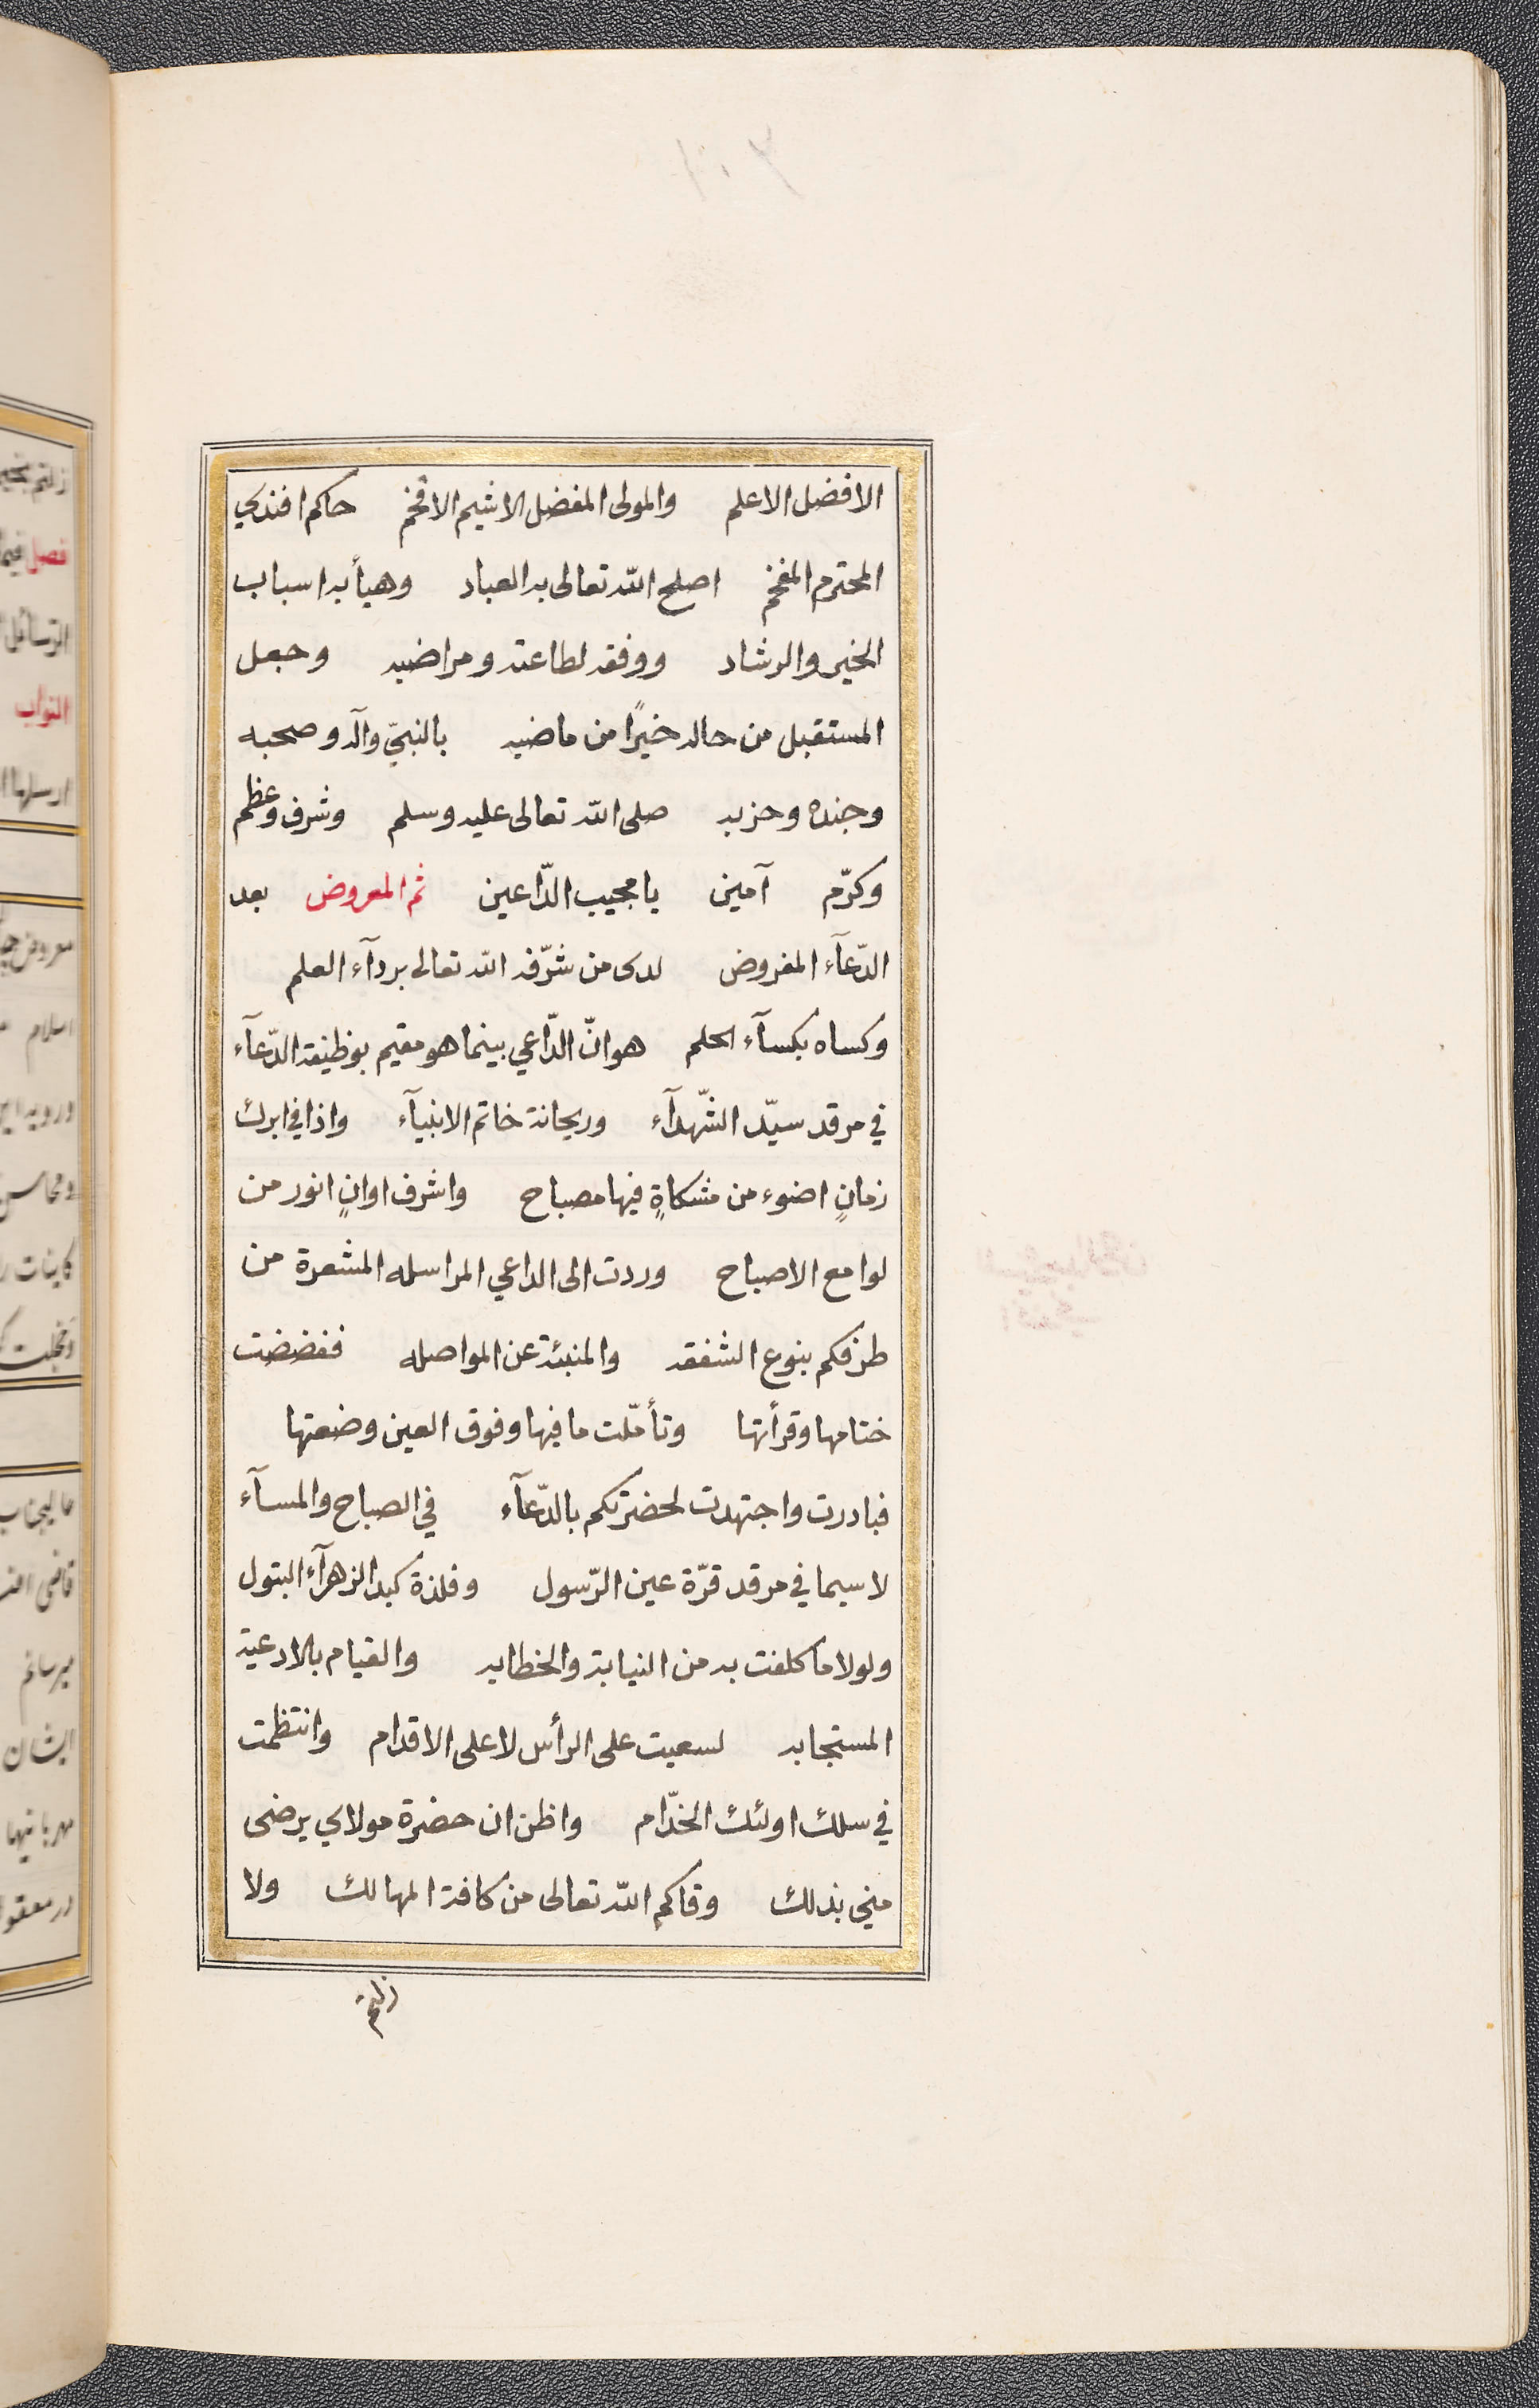 الافضل الاعلم والمولى المفضل الاشيم الافخم حاكم افندي
المحترم المفخم اصلح الله تعالى به العباد وهيأ به اسباب
الخير والرشاد ووفقه لطاعته ومراضيه وجعل
المستقبل من حاله خيرًا من ماضيه بالنبيّ وآله وصحبه
وجنده وحزبه صلى الله تعالى عليه وسلم وشرف وعظم
وكرّم آمين يا مجيب الدّاعين ثم المعروض بعد
الدّعآء المفروض لدى من شرّفه الله تعالى بردآء العلم
وكساه بكسآء الحلم هو انّ الدّاعي بينما هو مقيم بوظيفة الدّعآء
في مرقد سيّد الشّهدآء وريحانة خاتم الانبيآء واذا في ابرك
زمانٍ اضوء من مشكاةٍ فيها مصباح واشرف اوانٍ انور من
لوامع الاصباح وردت الى الداعي المراسله المشعرة من
طرفكم بنوع الشفقه والمنبئة عن المواصله ففضضت
ختامها وقرأتها وتأمّلت ما فيها وفوق العين وضعتها
فبادرت واجتهدت لحضرتكم بالدّعآء في الصباح والمسآء
لا سيما في مرقد قرّة عين الرّسول وفلذة كبد الزهرآء البتول
ولولا ما كلفت به من النيابة والخطابه والقيام بالادعية
المستجابه لسعيت على الرأس لا على الاقدام وانتظمت
في سلك اولئك الخدّام واظن ان حضرة مولاي يرضى
مني بذلك وقاكم الله تعالى من كافة المهالك ولا
زلتم